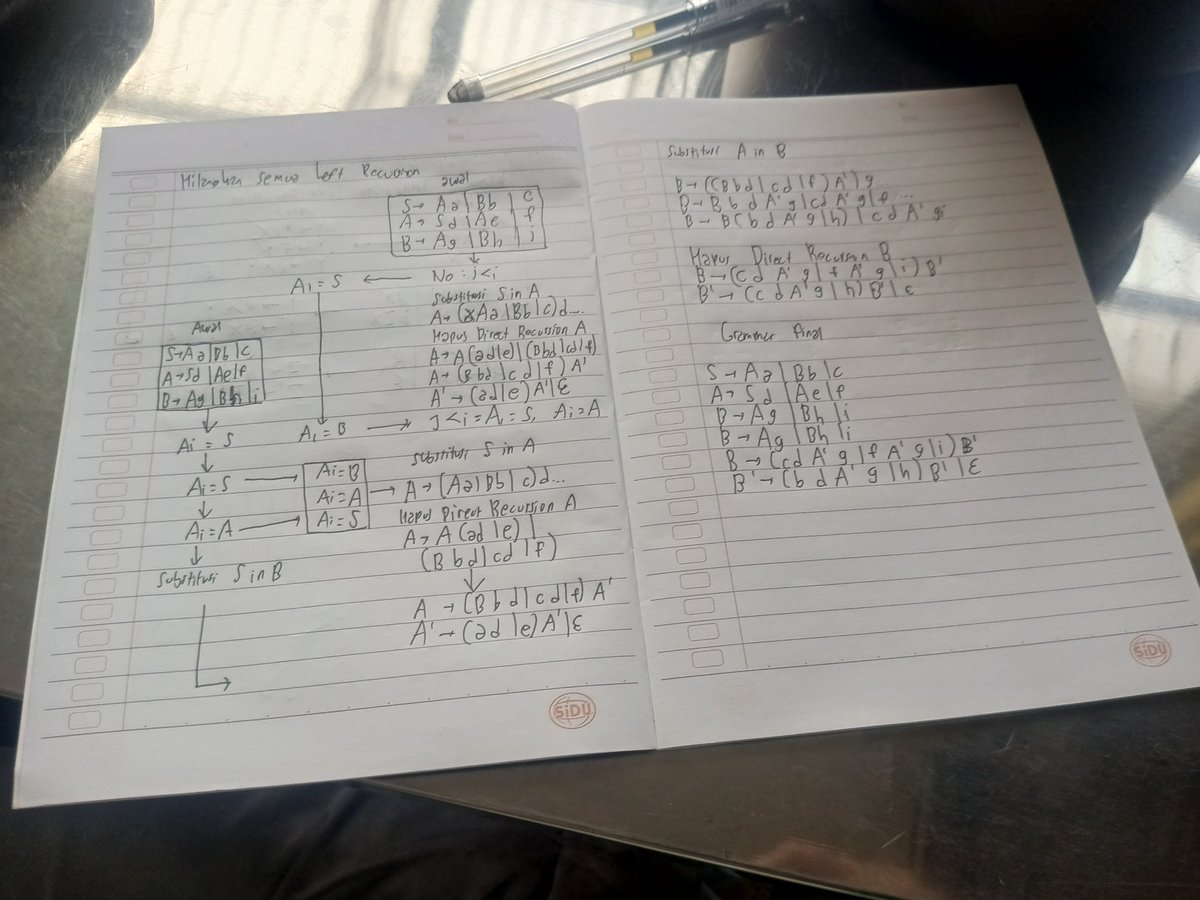 No:
Date:
Hilangkan Semua Left Recursion
awal
S → Aa | Bb | c
A → Sd | Ae | f
B → Ag | Bh | i
No : j < i
Ai = S
Substitusi S in A
A → (Aa | Bb | c) d...
Hapus Direct Recursion A
A → A (ad | e) | (Bbd | cd | f)
A → (Bbd | cd | f) A'
A' → (ad | e) A' | ε
Ai = B
J < i = Ai = S, Ai = A
Awal
S → Aa | Bb | c
A → Sd | Ae | f
B → Ag | Bh | i
Ai = S
Ai = S
Ai = A
Substitusi S in B
Ai = B
Ai = A
Ai = S
Substitusi S in A
A → (Aa | Bb | c) d...
Hapus Direct Recursion A
A → A (ad | e) |
(B b d | cd | f)
A → (B b d | c d | f) A'
A' → (ad | e) A' | ε
SiDU
Substitusi A in B
B → ((Bbd | cd | f) A') g...
B → B b d A' g | cd A' g | f ...
B → B (b d A' g | h) | c d A' gi
Hapus Direct Recursion B
B → (c d A' g | f A' g | i) B'
B' → (c d A' g | h) B' | ε
Grammer Final
S → Aa | Bb | c
A → Sd | Ae | f
B → Ag | Bh | i
B → Ag | Bh | i
B → (cd A' g | f A' g | i) B'
B' → (b d A' g | h) B' | ε
SiDU